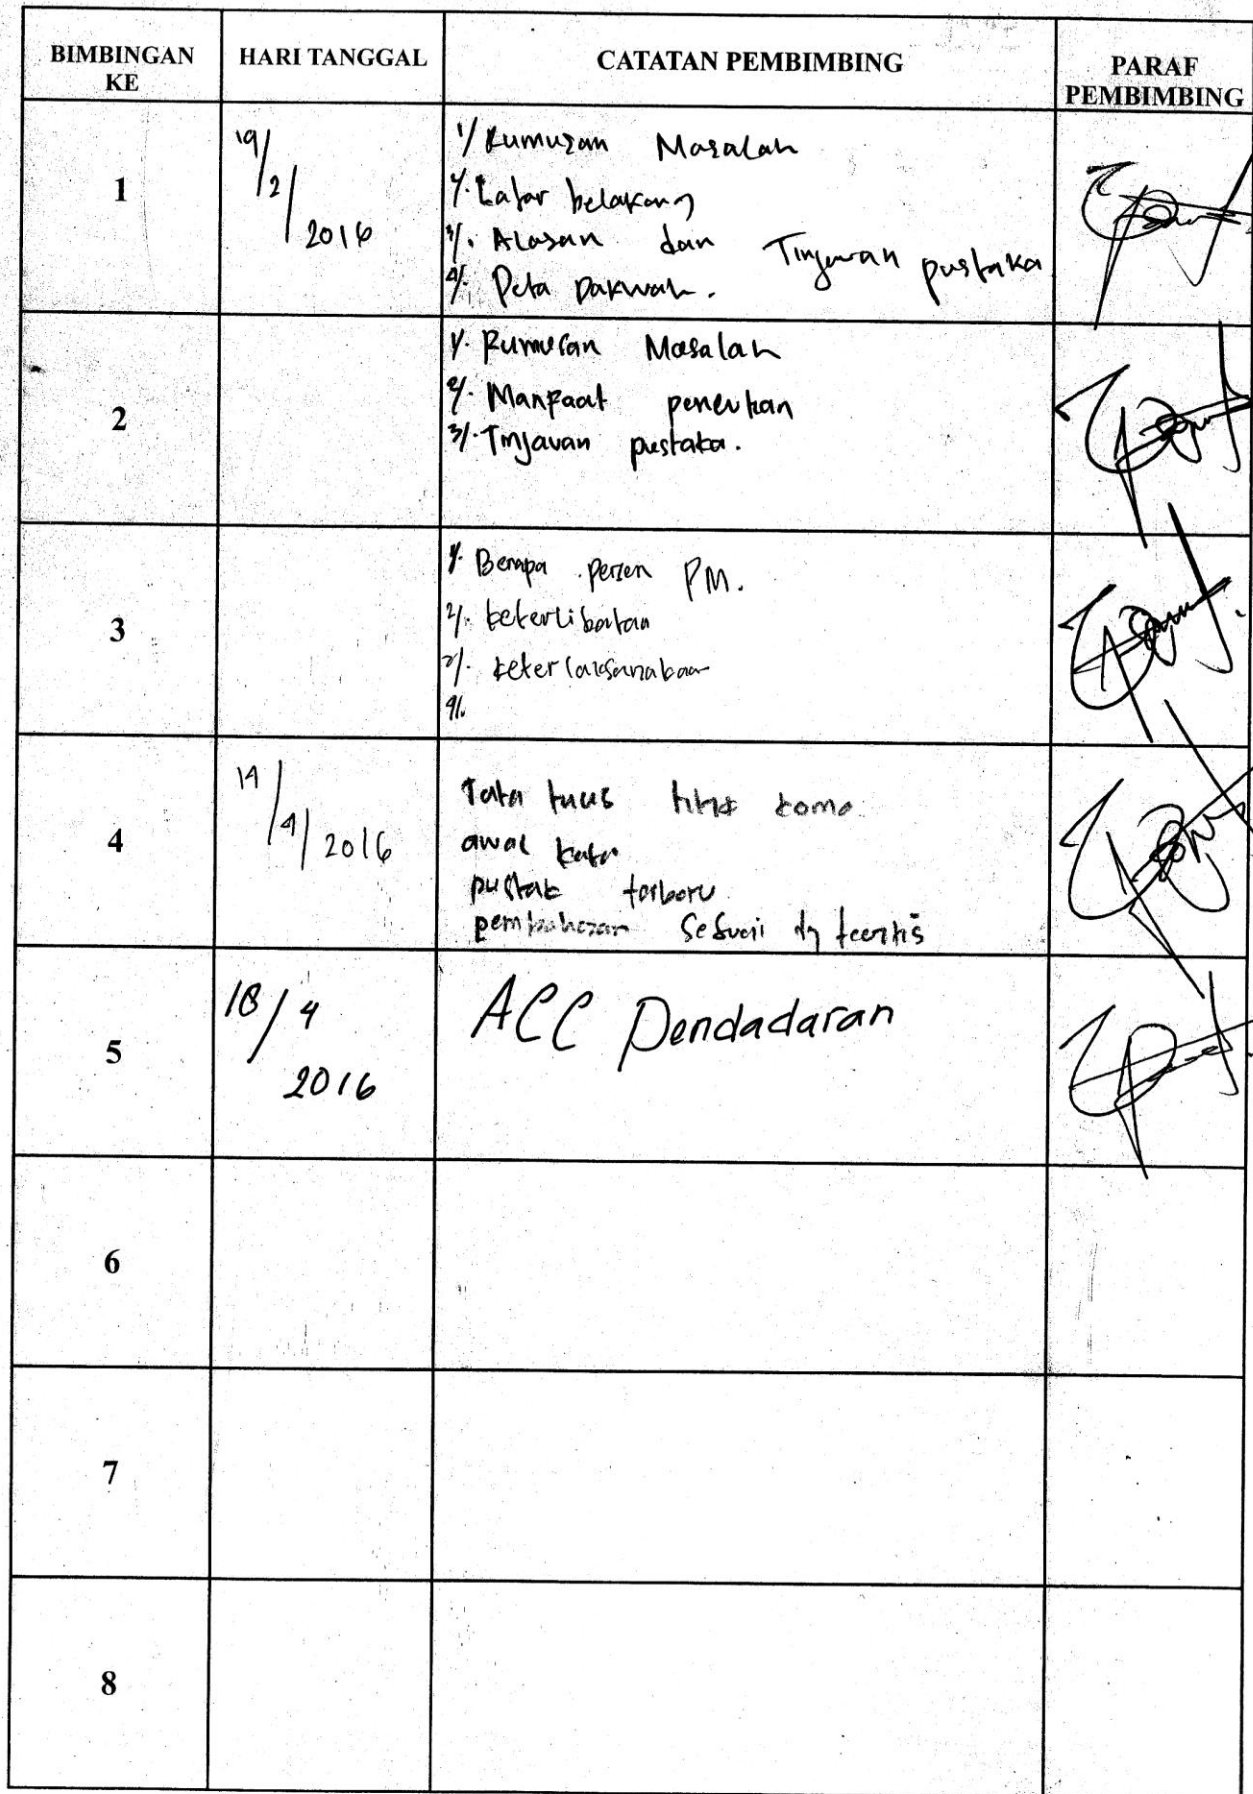 BIMBINGAN KE
HARI TANGGAL
CATATAN PEMBIMBING
PARAF PEMBIMBING
1
19/2/2016
1/ Rumusan Masalah
2/. Latar belakang
3/. Alasan dan Tinjauan pustaka
4/. Peta Dakwah.
2
1/. Rumusan Masalah
2/. Manfaat penelitian
3/. Tinjauan pustaka.
3
1/. Berapa persen PM.
2/. keterlibatan
3/. keterlaksanakaan
4/.
4
14/4/2016
Tata tulis titik koma
awal kata
pustak terbaru
pembahasan sesuai dg teoritis
5
18/4 2016
ACC Pendadaran
6
7
8